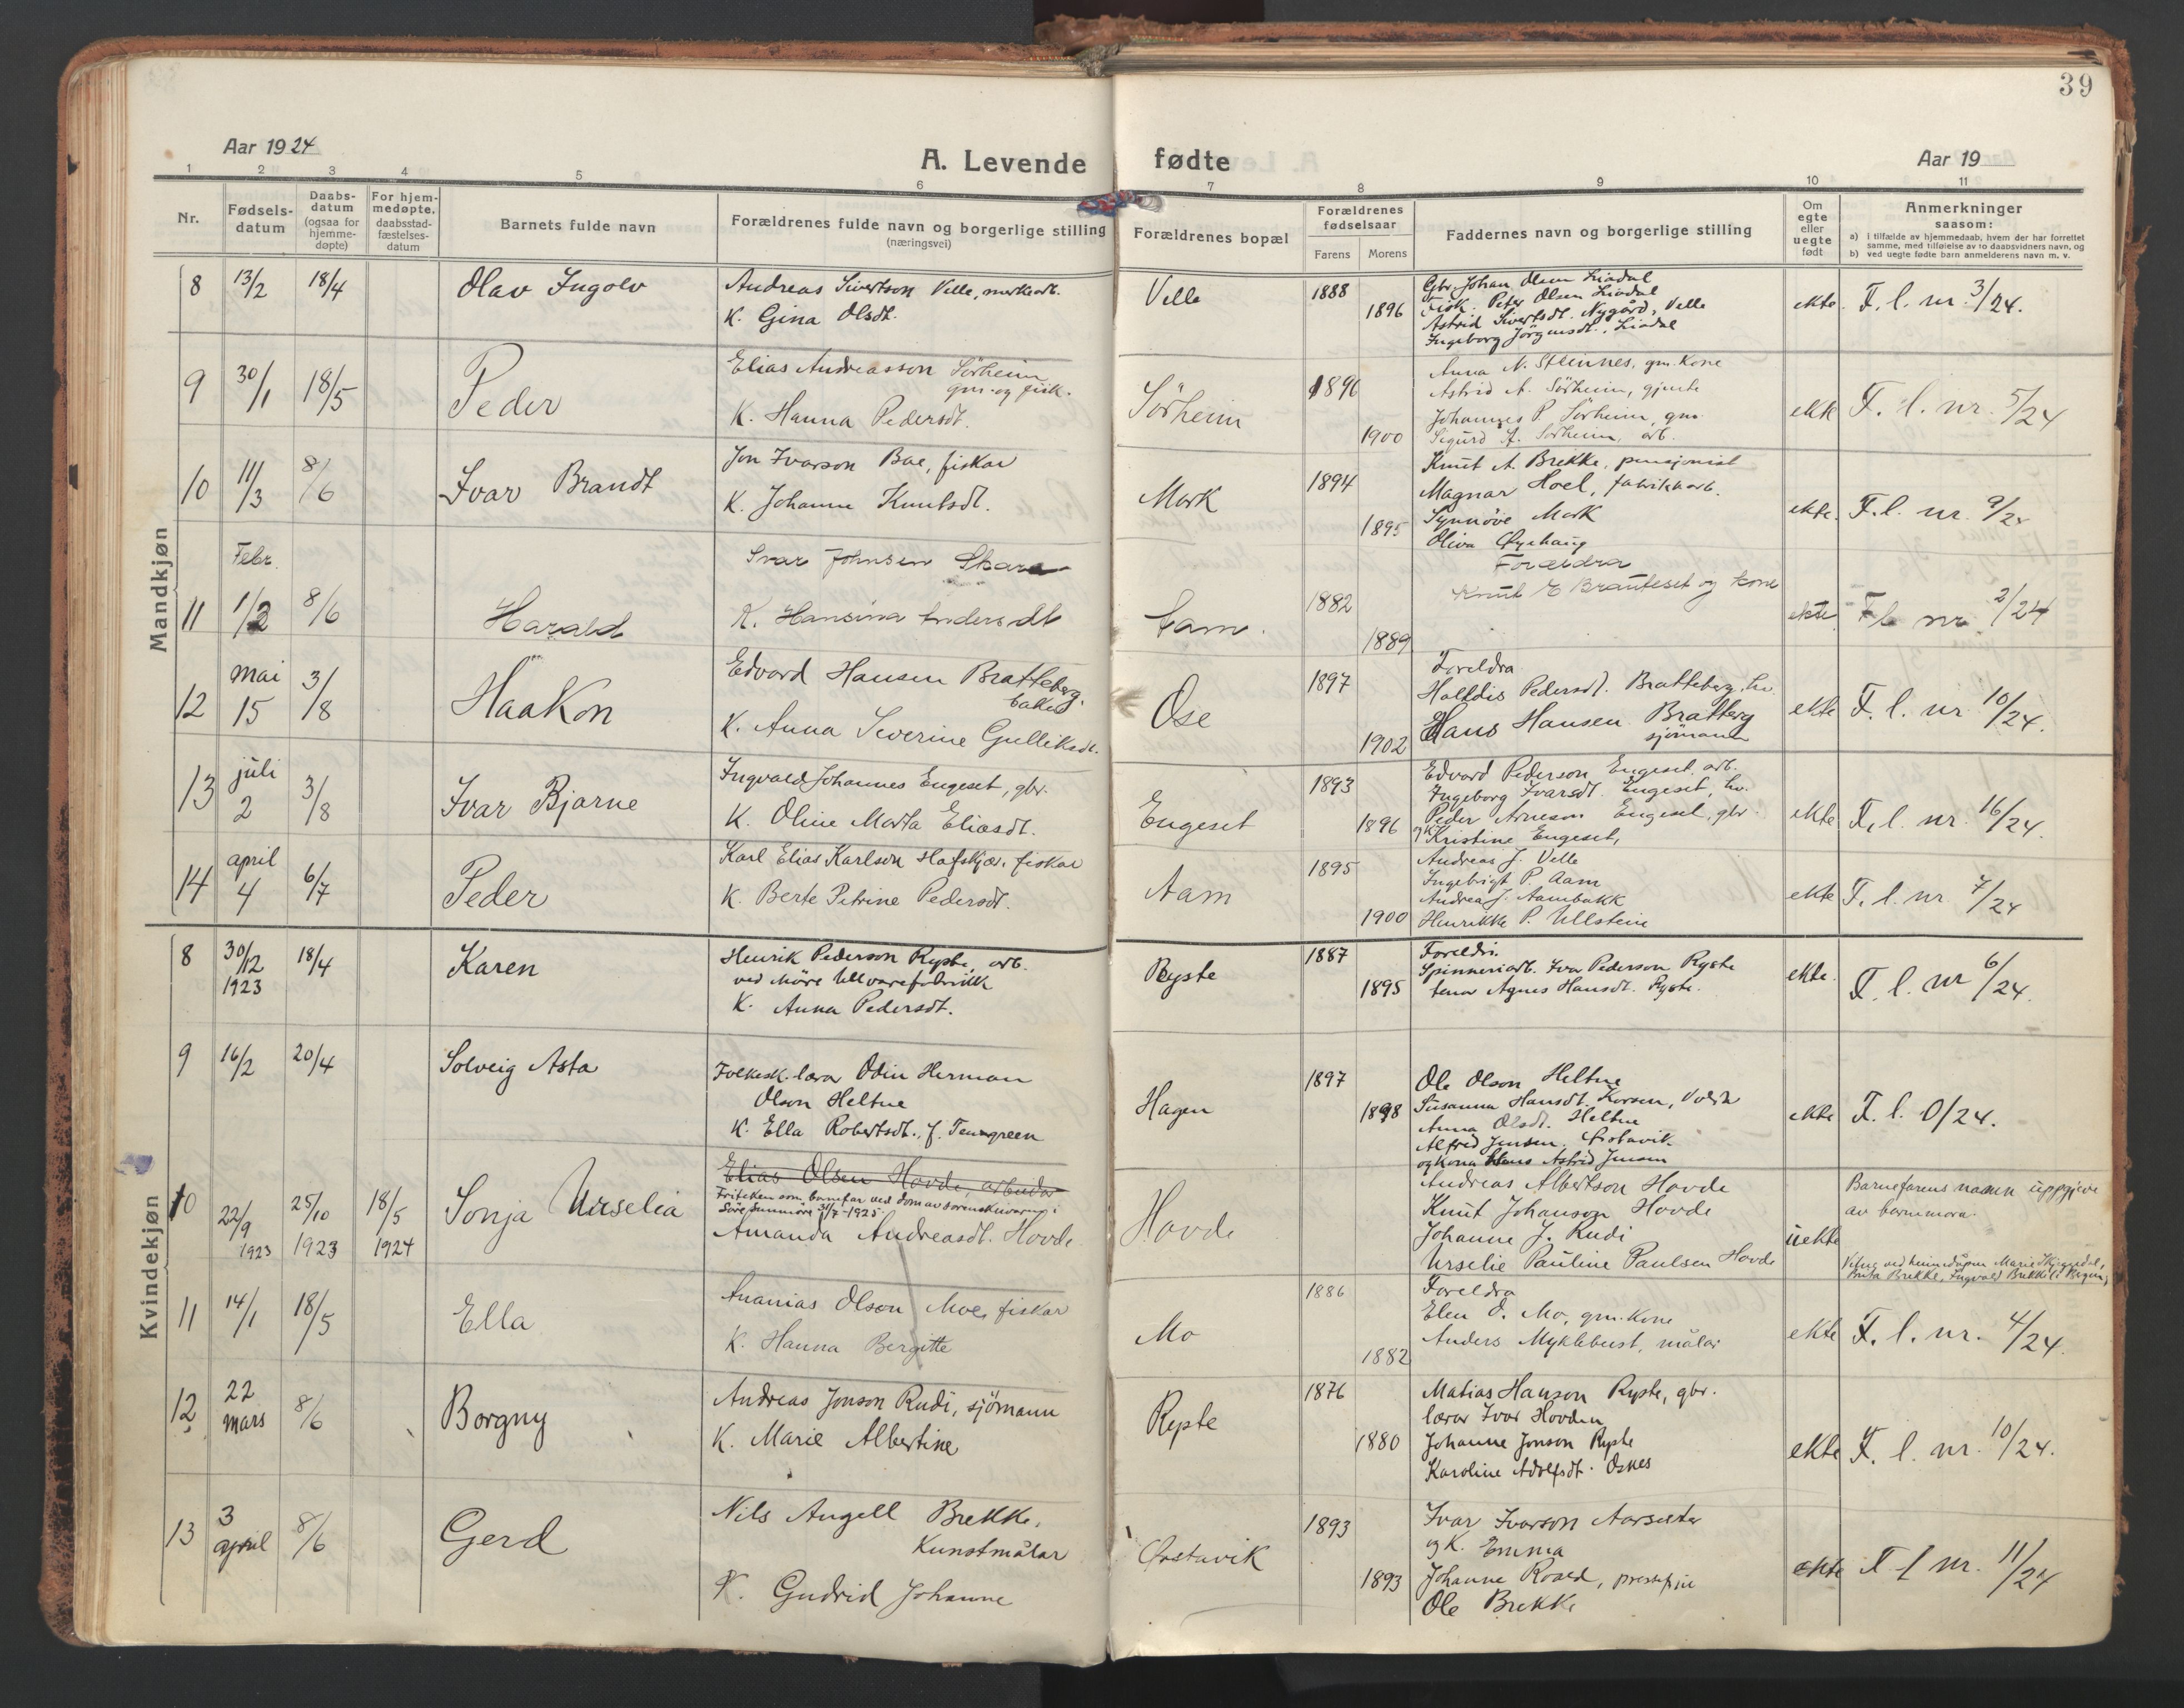 39
Aar 1924
A. Levende fødte
Aar 19
1 2 3 4 5 6 7 8 9 10 11
Nr.
Fødsels-
datum
Daabs-
datum
(ogsaa for
hjemme-
døpte)
For hjem-
medøpte.
daabsstad-
fæstelses-
datum
Barnets fulde navn
Forældrenes fulde navn og borgerlige stilling
(næringsvei)
Forældrenes bopæl
Forældrenes
fødselsaar
Farens Morens
Faddernes navn og borgerlige stilling
Om
egte
eller
uegte
født
Anmerkninger
saasom:
a) i tilfælde av hjemmedaab, hvem der har forrettet
samme, med tilføielse av to daabsvidners navn, og
b) ved uegte fødte barn anmelderens navn m. v.
Mandkjøn
8 13/2 18/4 Olav Ingolv
Andreas Sivertson Velle, merkearb.
K. Gina Olsdt.
Velle 1888 1896
Gbr. Johan Olsen Liadal
Fisk. Peter Olsen Liadal
Astrid Sivertsdt. Nygård, Velle
Ingeborg Jörgensdt. Liadal
ekte. F. l. nr. 3/24.
9 30/1 18/5 Peder
Elias Andreasson Sörheim
gm. og fisk.
K. Hanna Pedersdt.
Sörheim 1896 1900
Anna N. Steinnes, gm. kone
Astrid A. Sörheim, gjente
Johannes P. Sörheim, gm.
Sigurd A. Sörheim, arb.
ekte F. l. nr. 5/24
10 11/3 8/6 Ivar Brandt
Jon Ivarson Bae, fiskar
K. Johanne Knutsdt.
Mork 1894 1895
Knut A. Brekke, pensjonist
Magnar Hoel, fabrikkarb.
Synnöve Mork
Oliva Øyehaug
ekte. F. l. nr. 9/24
11 Febr. 1/2 8/6 Harald
Ivar Johnsen Skare
K. Hansina Andersdt
Aam. 1882 1889
Foreldra
Knut E Brauteset og kone
ekte F l nr 2/24
12 mai 15 3/8 Haakon
Edvard Hansen Bratteberg.
baker
K. Anna Severine Gulliksdt.
Ose 1897 1902
Foreldra
Halldis Pedersdt. Bratteberg, hv.
Hans Hansen Bratberg
sjömann
ekte F. l. nr 10/24.
13 juli 2 3/8 Ivar Bjarne
Ingvald Johannes Engeset, gbr.
K. Oline Marta Eliasdt.
Engeset 1893 1896
Edvard Pederson Engeset arb.
Ingeborg Ivarsdt. Engeset, hv.
Peder Arneson Engeset, gbr.
og K Kristine Engeset,
ekte F. l. nr. 16/24.
14 april 4 6/7 Peder
Karl Elias Karlson Hafskjær, fiskar
K. Berte Petrine Pedersdt.
Aam 1895 1900
Andreas J. Velle
Ingebrigt P. Aam
Andrea J. Aambakk
Henrikke P. Ullstein
ekte F. l. nr 7/24
Kvindekjøn
8 30/12 1923 18/4 Karen
Henrik Pederson Ryste, arb.
ved Möre Ullvarefabrikk
K. Anna Pedersdt.
Ryste 1887 1895
Foreldri.
Spinneriarb. Ivar Pederson Ryste
tenar Agnes Hansdt. Ryste.
ekte. F. l. nr 6/24.
9 16/2 20/4 Solveig Asta
Folkesk. lærar Odin Herman
Olson Heltne
K. Ella Robertsdt., f. Tenngreen
Hagen 1897 1898
Ole Olson Heltne
Susanna Hansdt. Korsen, Volda
Anna Olsdt. Heltne
Alfred Jensen, Ørstavik
og kona hans Astrid Jensen
ekte F. l. 0/24.
10 22/9 1923 25/10 1923 18/5 1924 Sonja Urselia
Elias Olsen Hovde, arbeidar
Friteken som barnefar ved dom av sorenskrivaren i
Söre Sunnmöre 31/7-1925.
Amanda Andreasdt. Hovde
Hovde
Andreas Albertson Hovde
Knut Johanson Hovde
Johanne J. Rudi
Urselie Pauline Paulsen Hovde
uekte
Barnefarens namn uppgjeve
av barnemora.
Vitne ved heimedåpen Marie Skjegedal,
Berta Brekke, Ingvald Brekke i Bergen,
11 14/1 18/5 Ella
Ananias Olson Moe, fiskar
K. Hanna Bergitte
Mo 1886 1882
Foreldra
Elen O. Mo, gm. kone
Anders Myklebust, målar
ekte F. l. nr. 4/24.
12 22 mars 8/6 Borgny
Andreas Jonson Rudi, sjömann
K. Marie Albertine
Ryste 1876 1880
Matias Hanson Ryste, gbr.
lærar Ivar Hovden
Johanne Jonson Ryste
Karoline Adolfsdt. Osnes
ekte F. l. nr. 10/24.
13 3 april 8/6 Gerd
Nils Angell Brekke,
Kunstmålar
K. Gudrid Johanne
Ørstavik 1893 1893
Ivar Ivarson Aarseter
og K. Emma
Johanne Roald,
Ole Brekke
ekte F l nr. 11/24